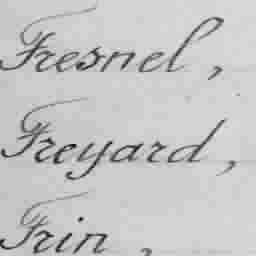 Fresnel,
Freyard,
Frin,